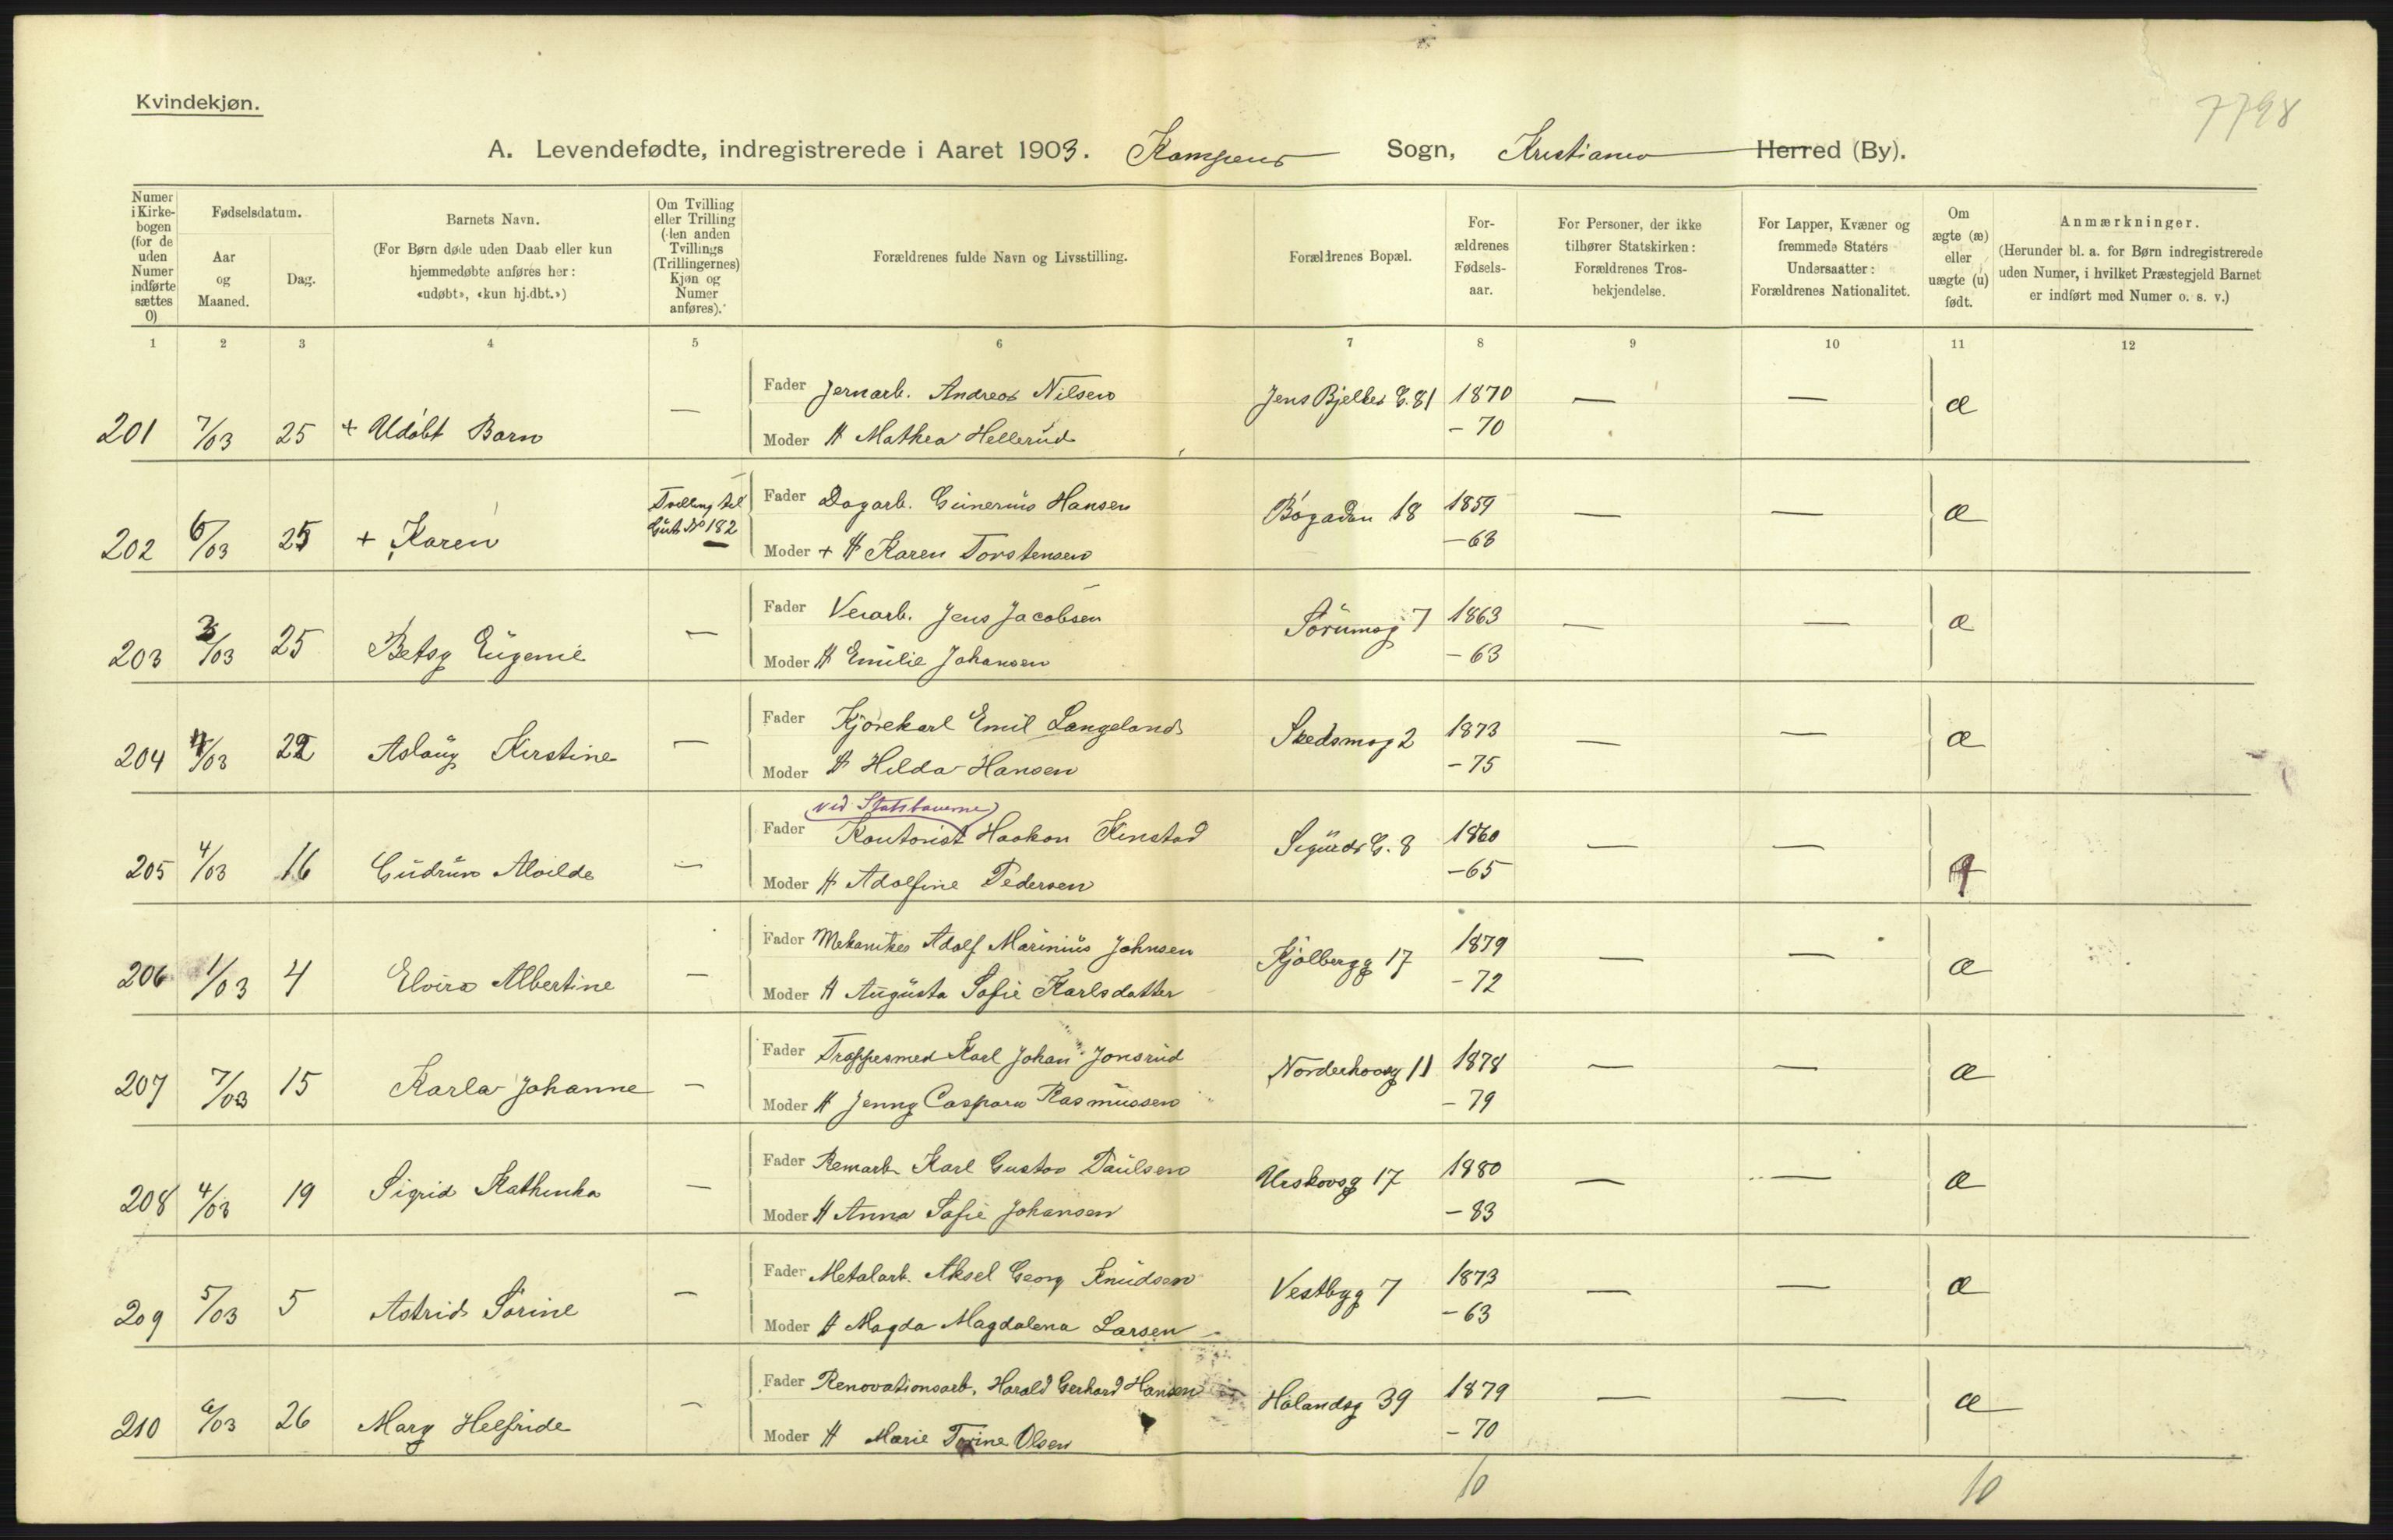 Kvindekjøn.
7798
A. Levendefødte, indregistrerede i Aaret 1903. Kampens Sogn, Kristiania Herred (By).
Numer i Kirke-bogen (for de uden Numer indførte sættes 0)
Fødselsdatum.
Aar og Maaned.
Dag.
Barnets Navn.
(For Børn døde uden Daab eller kun hjemmedøbte anføres her: «udøbt», «kun hj.dbt.»)
Om Tvilling eller Trilling (den anden Tvillings (Trillingernes) Kjøn og Numer anføres).
Forældrenes fulde Navn og Livsstilling.
Forældrenes Bopæl.
For-ældrenes Fødsels-aar.
For Personer, der ikke tilhører Statskirken: Forældrenes Tros-bekjendelse.
For Lapper, Kvæner og fremmede Staters Undersaatter: Forældrenes Nationalitet.
Om ægte (æ) eller uægte (u) født.
Anmærkninger.
(Herunder bl. a. for Børn indregistrerede uden Numer, i hvilket Præstegjeld Barnet er indført med Numer o. s. v.)
1 2 3 4 5 6 7 8 9 10 11 12
Fader Jernarb. Andreas Nilsen Jens Bjelkes G. 81 1870 — — æ
201 7/03 25 + Udøbt Barn — Moder H Mathea Hellerud - 70
Tvilling til Gut No 182
Fader Dagarb. Gunerius Hansen Bøgaden 18 1859 — — æ
202 6/03 25 + Karen Moder + H Karen Torstensen - 68
Fader Verarb. Jens Jacobsen Sörumsg 7 1863 — — æ
203 3/03 25 Betsy Eugenie — Moder H Emilie Johansen - 63
Fader Kjørekarl Emil Langeland Skedsmog 2 1873 — — æ
204 4/03 22 Aslaug Kirstine — Moder H Hilda Hansen - 75
ved Statsbanerne
Fader Kontorist Haakon Kinstad Sigurds G. 8 1860 — —
205 4/03 16 Gudrun Alvilde — Moder H Adolfine Pedersen - 65
Fader Mekaniker Adolf Marinius Johnsen Kjølbergg 17 1879 — — æ
206 1/03 4 Elvira Albertine — Moder H Augusta Sofie Karlsdatter - 72
Fader Trappesmed Karl Johan Jonsrud Norderhovsg 11 1878 — — æ
207 7/03 15 Karla Johanne — Moder H Jenny Caspara Rasmussen - 79
Fader Remarb Karl Gustav Paulsen Urskovsg 17 1880 — — æ
208 4/03 19 Sigrid Kathinka — Moder H Anna Sofie Johansen - 83
Fader Metalarb. Aksel Georg Knudsen Vestbyg 7 1873 — — æ
209 5/03 5 Astrid Sørine — Moder H Magda Magdalena Larsen - 63
Fader Renovationsarb. Harald Gerhard Hansen Hølandsg 39 1879 — — æ
210 6/03 26 Mary Helfride — Moder H Marie Torine Olsen - 70
10 10